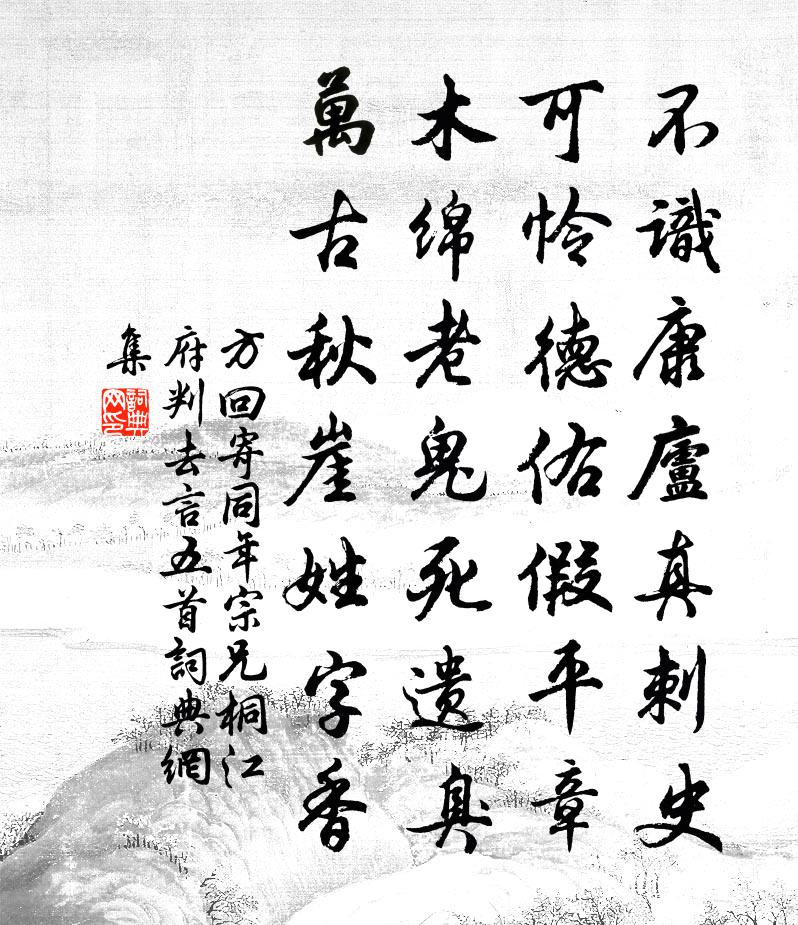 不識康廬真刺史
可怜德佑假平章
木绵老鬼死遗臭
萬古秋崖姓字香
方回寄同年宗兄桐江
府判去言五首詞典網
集
詞典
网印